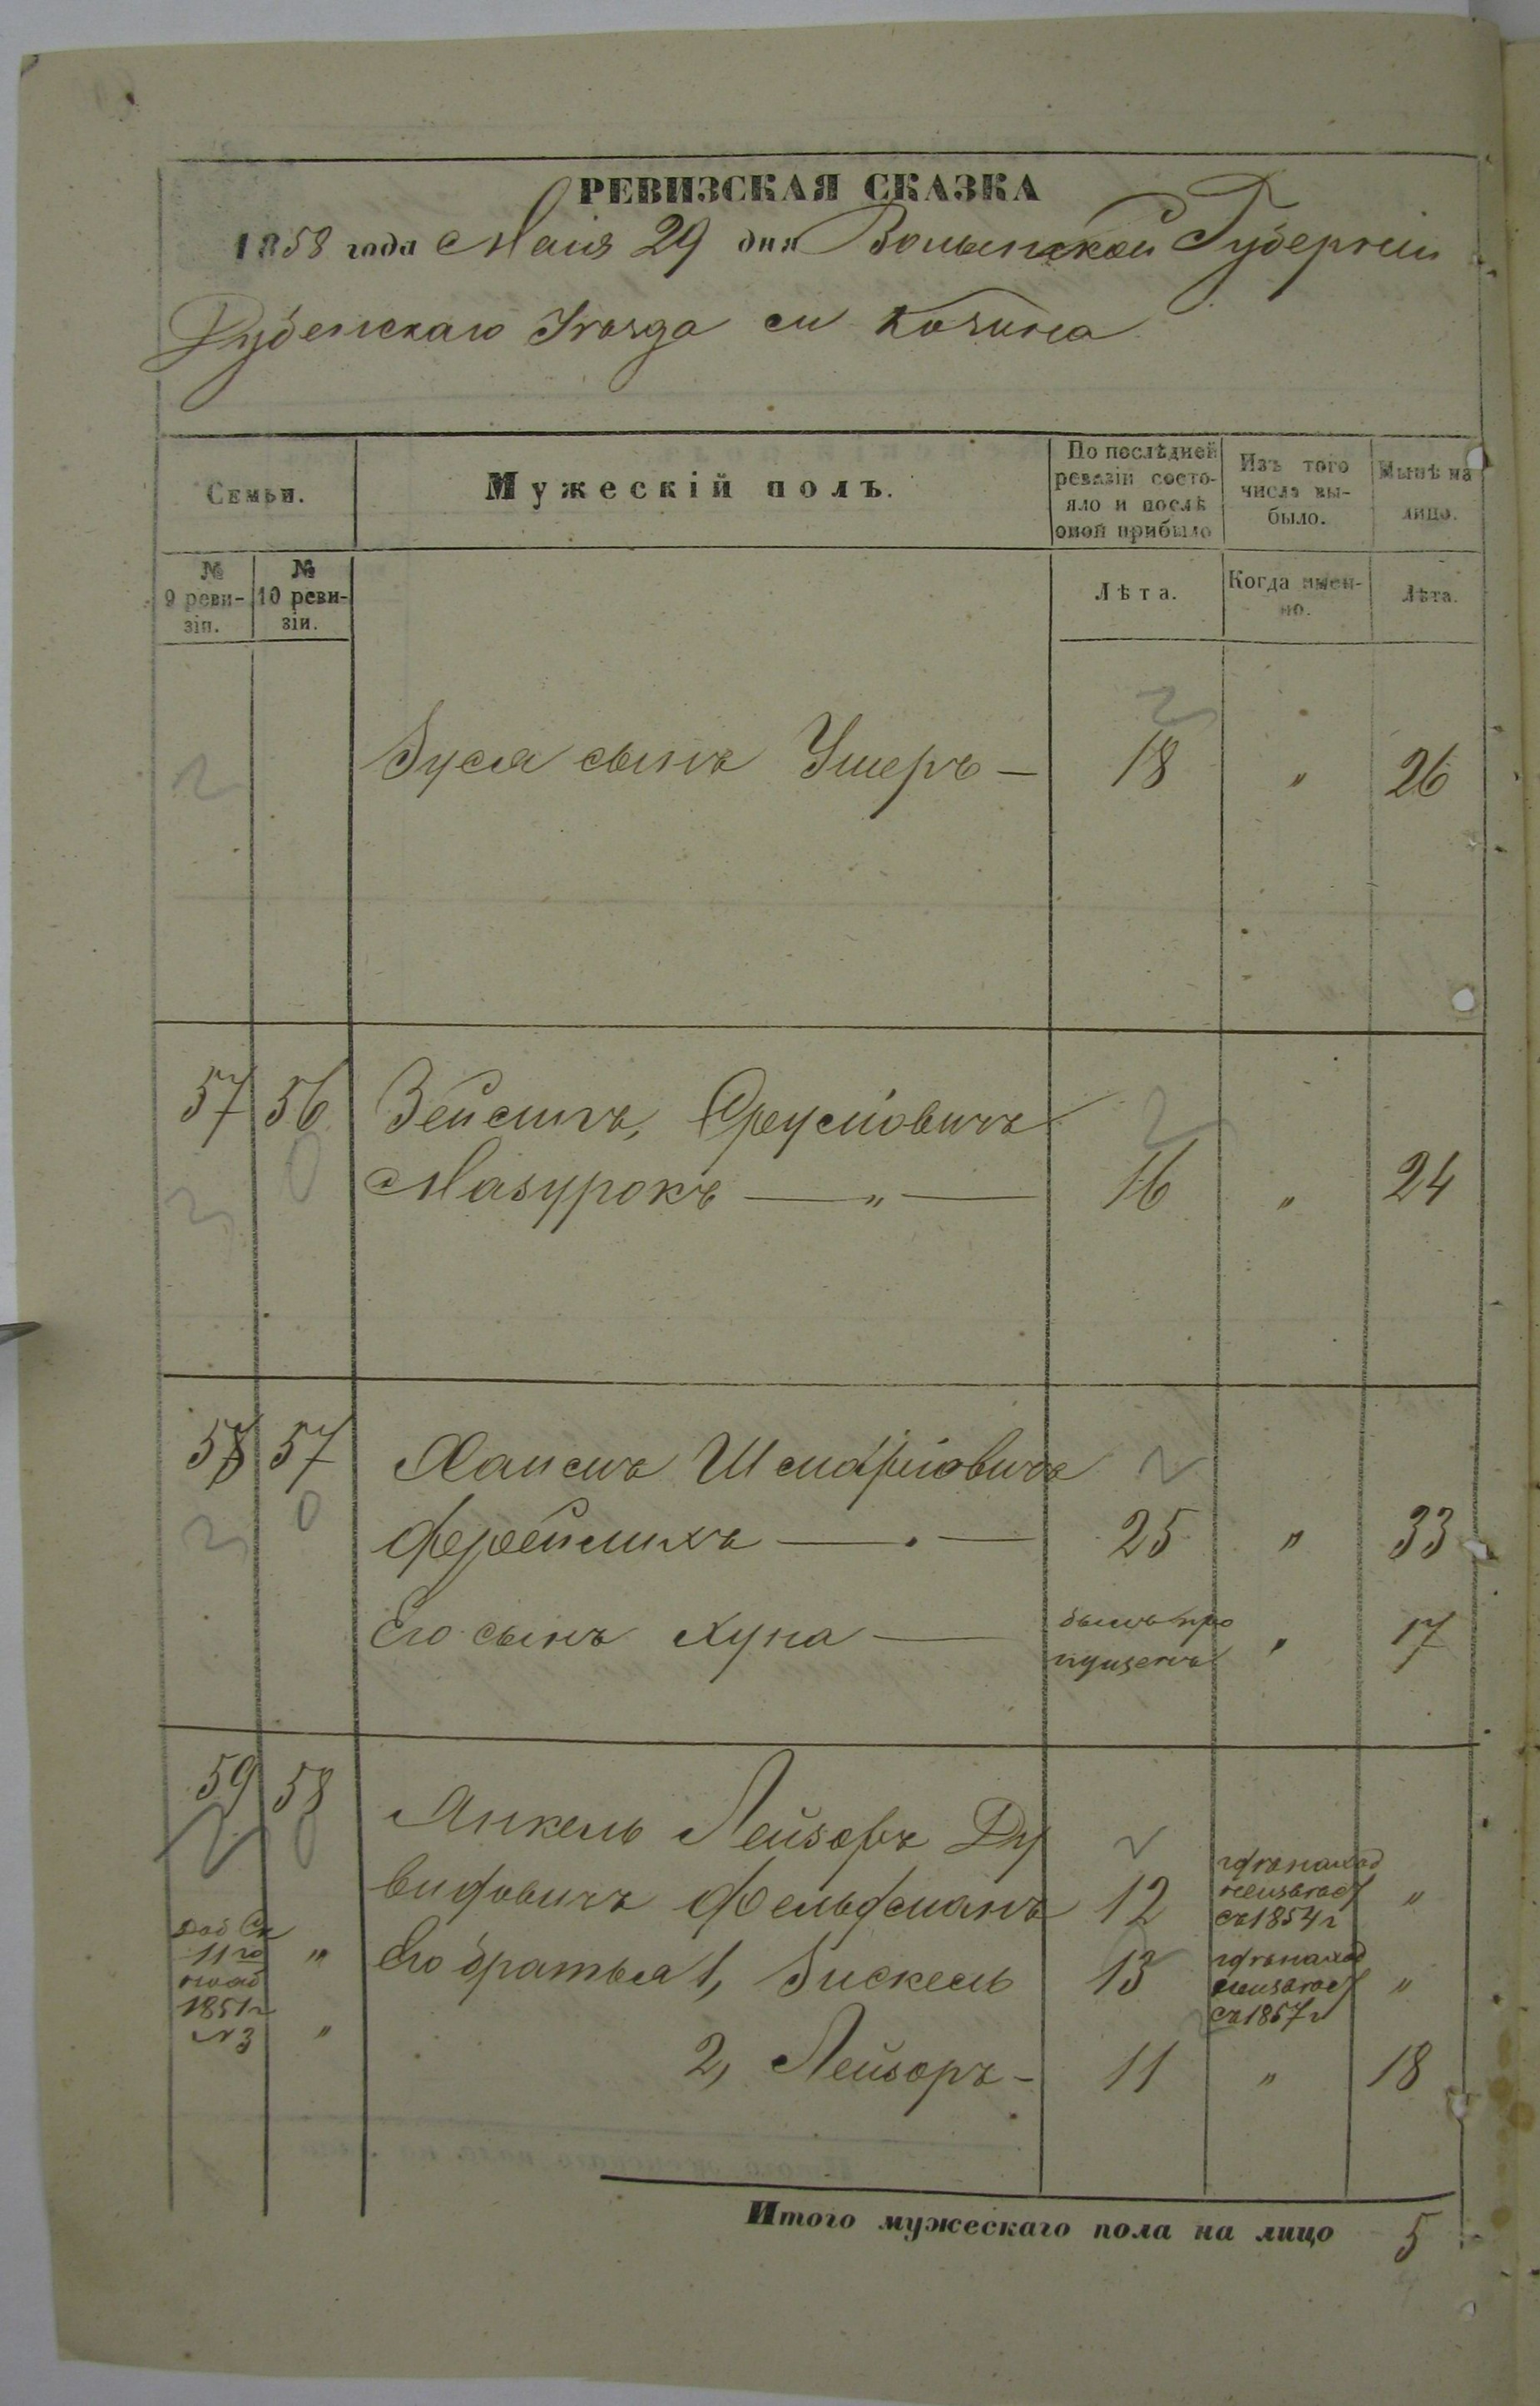 РЕВИЗСКАЯ СКАЗКА
1858 года Маія 29 дня Волынской Губерніи
Дубенскаго Уѣзда м Козина
Семьи.
Мужескій полъ.
По послѣдней ревизіи состо-
яло и послѣ
оной прибыло
Изъ того
числа вы-
было.
Нынѣ на
лицо.
№
9 реви-
зіи.
№
10 реви-
зіи.
Лѣта.
Когда имен-
но.
Лѣта.
Зуся сынъ Ушеръ — 18 " 26
57 56 Зейлигъ, Сруліовичъ
Мазурокъ — " — 16 " 24
58 57 Хаимъ Шмаріовичъ
— 25 " 33
Его сынъ Хуна — былъ про
пущенъ " 17
59 58 Янкель Лейзоръ Ду
видовичъ Фельдманъ 12
съ 1854 г "
Доб Ск
11го
нояб
1851 г
№ 3
" Его братья 1, Хискель 13
съ 1857 г "
" 2, Лейзоръ — 11 " 18
Итого мужескаго пола на лицо 5